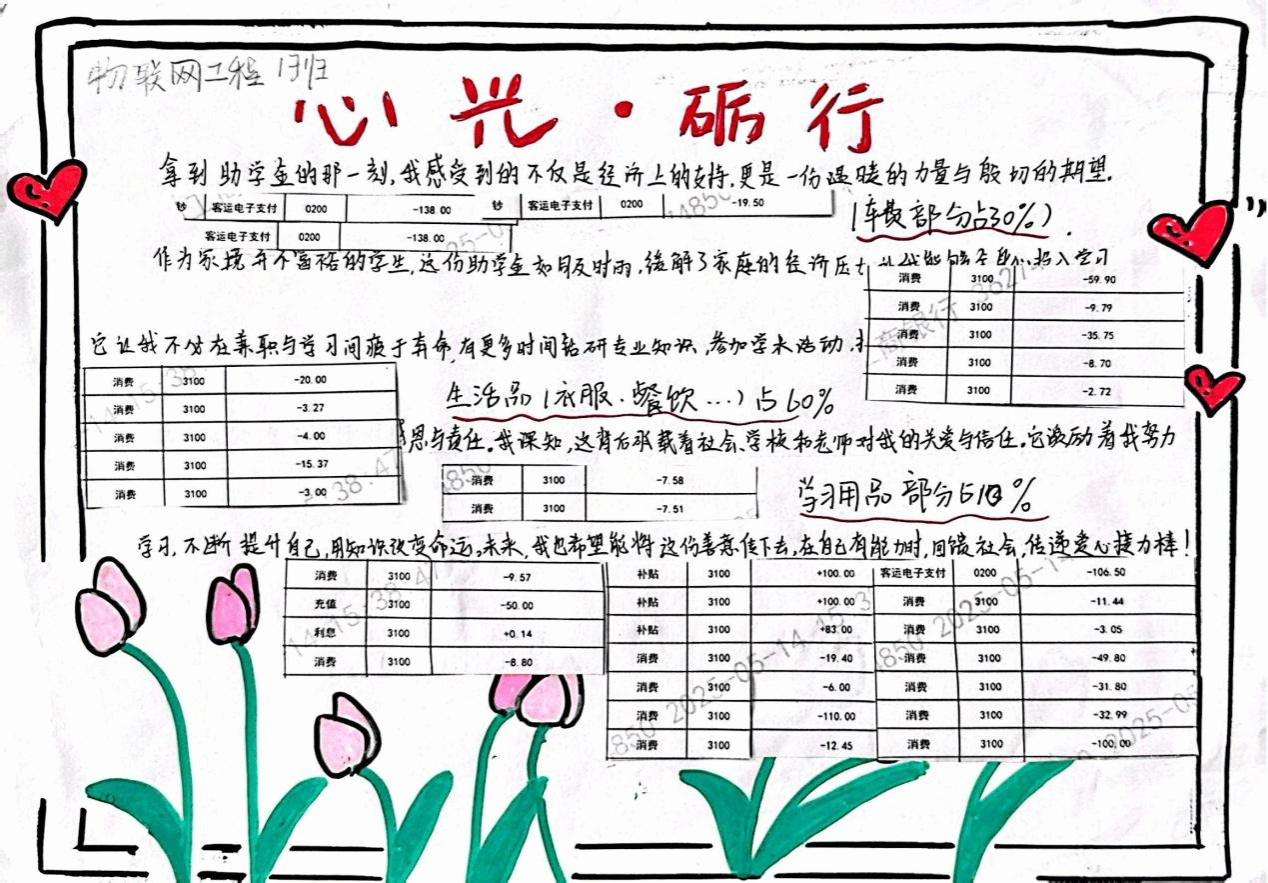 物联网工程 1班
心光·砺行
拿到助学金的那一刻,我感受到的不仅是经济上的支持,更是一份温暖的力量与殷切的期望.
钞 客运电子支付 0200 -138.00 钞 客运电子支付 0200 -19.50
客运电子支付 0200 -138.00
(车费部分占30%).
作为家境并不富裕的学生,这份助学金如同及时雨,缓解了家庭的经济压
投入学习
消费 3100 -59.90
消费 3100 -9.79
消费 3100 -35.75
消费 3100 -8.70
消费 3100 -2.72
它让我不必在兼职与学习间疲于奔命,有更多时间钻研专业知识,参加学术活动,
消费 3100 -20.00
消费 3100 -3.27
消费 3100 -4.00
消费 3100 -15.37
消费 3100 -3.00
生活品(衣服.餐饮...)占60%
恩与责任.我深知,这背后承载着社会、学校和老师对我的关爱与信任.它激励着我努力
消费 3100 -7.58
消费 3100 -7.51
学习用品部分占10%
学习,不断提升自己,用知识改变命运,未来,我也希望能将这份善意传下去,在自己有能力时,回馈社会,传递爱心接力棒!
消费 3100 -9.57
充值 3100 -50.00
利息 3100 +0.14
消费 3100 -8.80
补贴 3100 +100.00
补贴 3100 +100.00
补贴 3100 +83.00
消费 3100 -19.40
消费 3100 -6.00
消费 3100 -110.00
消费 3100 -12.45
客运电子支付 0200 -106.50
消费 3100 -11.44
消费 3100 -3.05
消费 3100 -49.80
消费 3100 -31.80
消费 3100 -32.99
消费 3100 -100.00